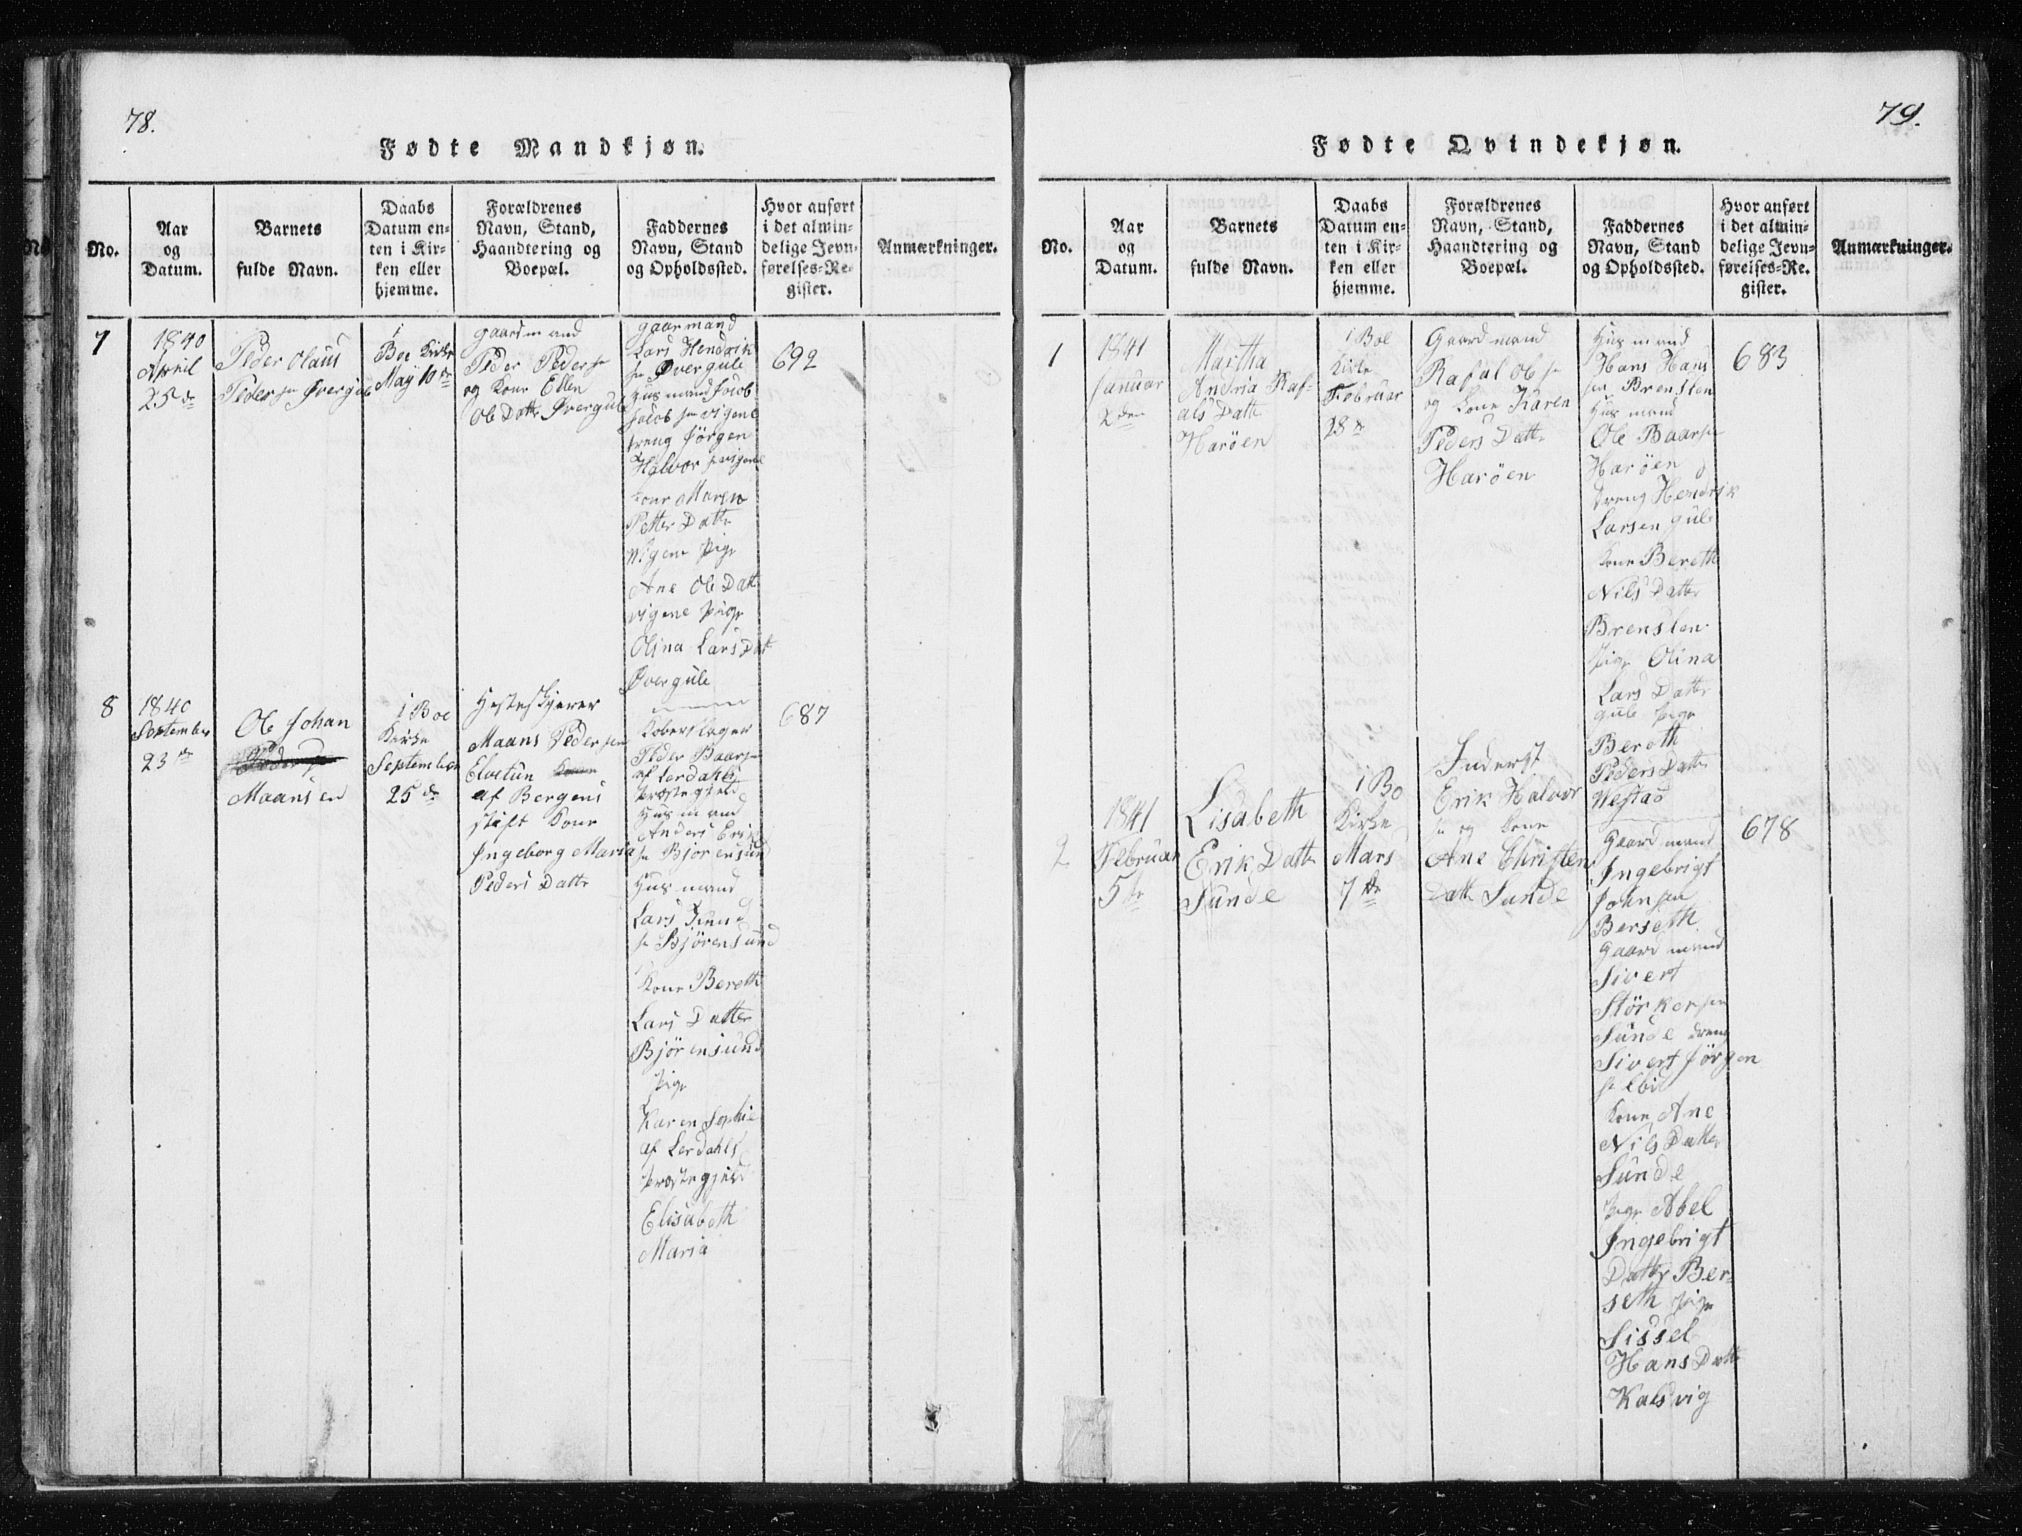 78.
Fødte Mandkjøn.
No.
Aar
og
Datum.
Barnets
fulde Navn.
Daabs
Datum en-
ten i Kir-
ken eller
hjemme.
Forældrenes
Navn, Stand,
Haandtering og
Boepæl.
Faddernes
Navn, Stand
og Opholdssted.
Hvor anført
i det almin-
delige Jevn-
førelses-Re-
gister.
Anmærkninger.
7
1840
April
25de
Peder Olaus
Peder sn Øvergule
i
Boe Kirke
May 10de
gaardmand
Peder Peder sn
og Kone Ellen
Ole Datter Øvergule
gaarmand
Lars Hendrik
sn Øvergule
Husmand Jacob
Jacob sn vigene
dreng Jørgen
Halvor sn vigene
Kone Maren
Petter Datter
vigene pige
Ane Ole Datt
vigene pige
Olina Lars Datt
Øvergule
692
8
1840
September
23de
Ole Johan
Maansen
i Boe
Kirke
September
25de
Hesteskjerer
Maans Peder sen
Elvetun
af Bergens
stift Kone
Ingeborg Maria
Peders Datter
Koberslager
Peder Baar sn
af Lerdahls
Præstegjeld
Husmand
Anders Erik
sn Bjørensund
Husmand
Lars Knud
sn Bjørensund
Kone Bereth
Lars Datter
Bjørensund
pige
Karen Sophie
af Lerdahls
Præstegjeld
Elisabeth
Maria
687
79.
Fødte Qvindekjøn.
No.
Aar
og
Datum.
Barnets
fulde Navn.
Daabs
Datum en-
ten i Kir-
ken eller
hjemme.
Forældrenes
Navn, Stand,
Haandtering og
Boepæl.
Faddernes
Navn, Stand
og Opholdssted.
Hvor anført
i det almin-
delige Jevn-
førelses-Re-
gister.
Anmærkninger.
1
1841
Januar
2den
Martha
Andria Raf-
als Datt
Harøen
i Boe
Kirke
Februar
28de
Gaardmand
Rafal Ole sn
og Kone Karen
Peders Datter
Harøen
Husmand
Hans Hans
sen Brensten
Husmand
Ole Baarsen
Harøen
dreng Hendrik
Larsen gule
Kone Bereth
Nils Datter
Brensten
pige Olina
Lars Datter
gule pige
Bereth
Peders Datter
Westad
683
2
1841
Februar
5te
Lisabeth
Erik Datter
Sunde
i Bo
Kirke
Mars
7de
Inderst
Erik Halvor
sn og Kone
Ane Christen
Datt Sunde
Gaardmand
Ingebrigt
Johnsen
Berseth
Gaardmand
Sivert
Størkersen
Sunde dreng
Sivert Jørgen
sn
Kone Ane
Nils Datter
Sunde
pige Abel
Ingebrigt
Datter Ber-
seth pige
Sissel
Hans Datter
Kalsvig
678